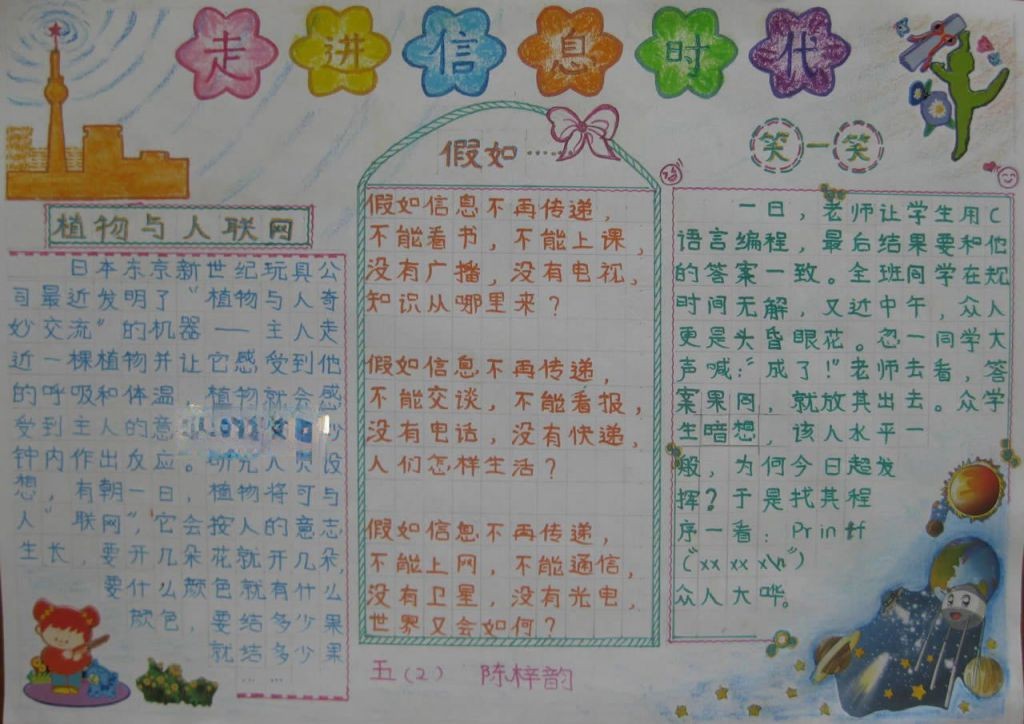 走进信息时代
植物与人联网
日本东京新世纪玩具公
司最近发明了“植物与人奇
妙交流”的机器——主人走
近一棵植物并让它感受到他
的呼吸和体温，植物就会感
受到主人的意
钟内作出反应。研究人员设
想，有朝一日，植物将可与
人“联网”，它会按人的意志
生长，要开几朵花就开几朵，
要什么颜色就有什么
颜色，要结多少果
就结多少果
……
假如……
假如信息不再传递，
不能看书，不能上课，
没有广播，没有电视，
知识从哪里来？
假如信息不再传递，
不能交谈，不能看报，
没有电话，没有快递，
人们怎样生活？
假如信息不再传递，
不能上网，不能通信，
没有卫星，没有光电，
世界又会如何？
五(2) 陈梓韵
笑一笑
一日，老师让学生用C
语言编程，最后结果要和他
的答案一致。全班同学在规
时间无解，又近中午，众人
更是头昏眼花。忽一同学大
声喊：“成了！”老师去看，答
案果同，就放其出去。众学
生暗想，该人水平一
般，为何今日超发
挥？于是找其程
序一看：Printf
(“xx xx x\n”)
众人大哗。